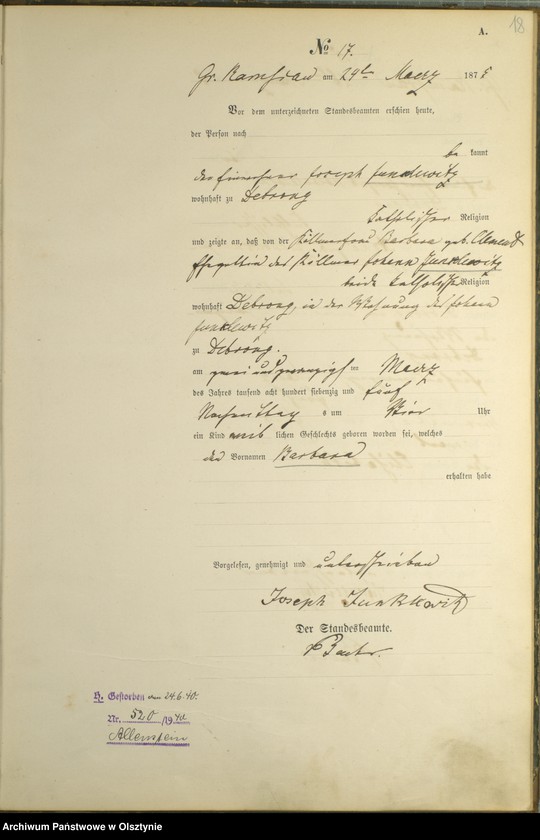 18
A.
№ 17.
Gr. Ramsau am 24ten Maerz 1875
Vor dem unterzeichneten Standesbeamten erschien heute,
der Person nach
be kannt
der Einwohner Joseph Junklewitz
wohnhaft zu Debrong
katholischer Religion
und zeigte an, daß von der Köllmerfrau Barbara geb. Clement
Ehegattin des Köllmer Johann Junklewitz
beide katholischer Religion
wohnhaft Debrong, in der Wohnung des Johann
Junklewitz
zu Debrong.
am zwei und zwanzigsten Maerz
des Jahres tausend acht hundert siebenzig und fünf
Nachmittag s um Vier Uhr
ein Kind weib lichen Geschlechts geboren worden sei, welches
den Vornamen Barbara
erhalten habe
Vorgelesen, genehmigt und unterschrieben
Joseph Junklewitz
Der Standesbeamte.
H. Gestorben am 24.6.40.
Nr. 520/1940
Allenstein
Archiwum Państwowe w Olsztynie